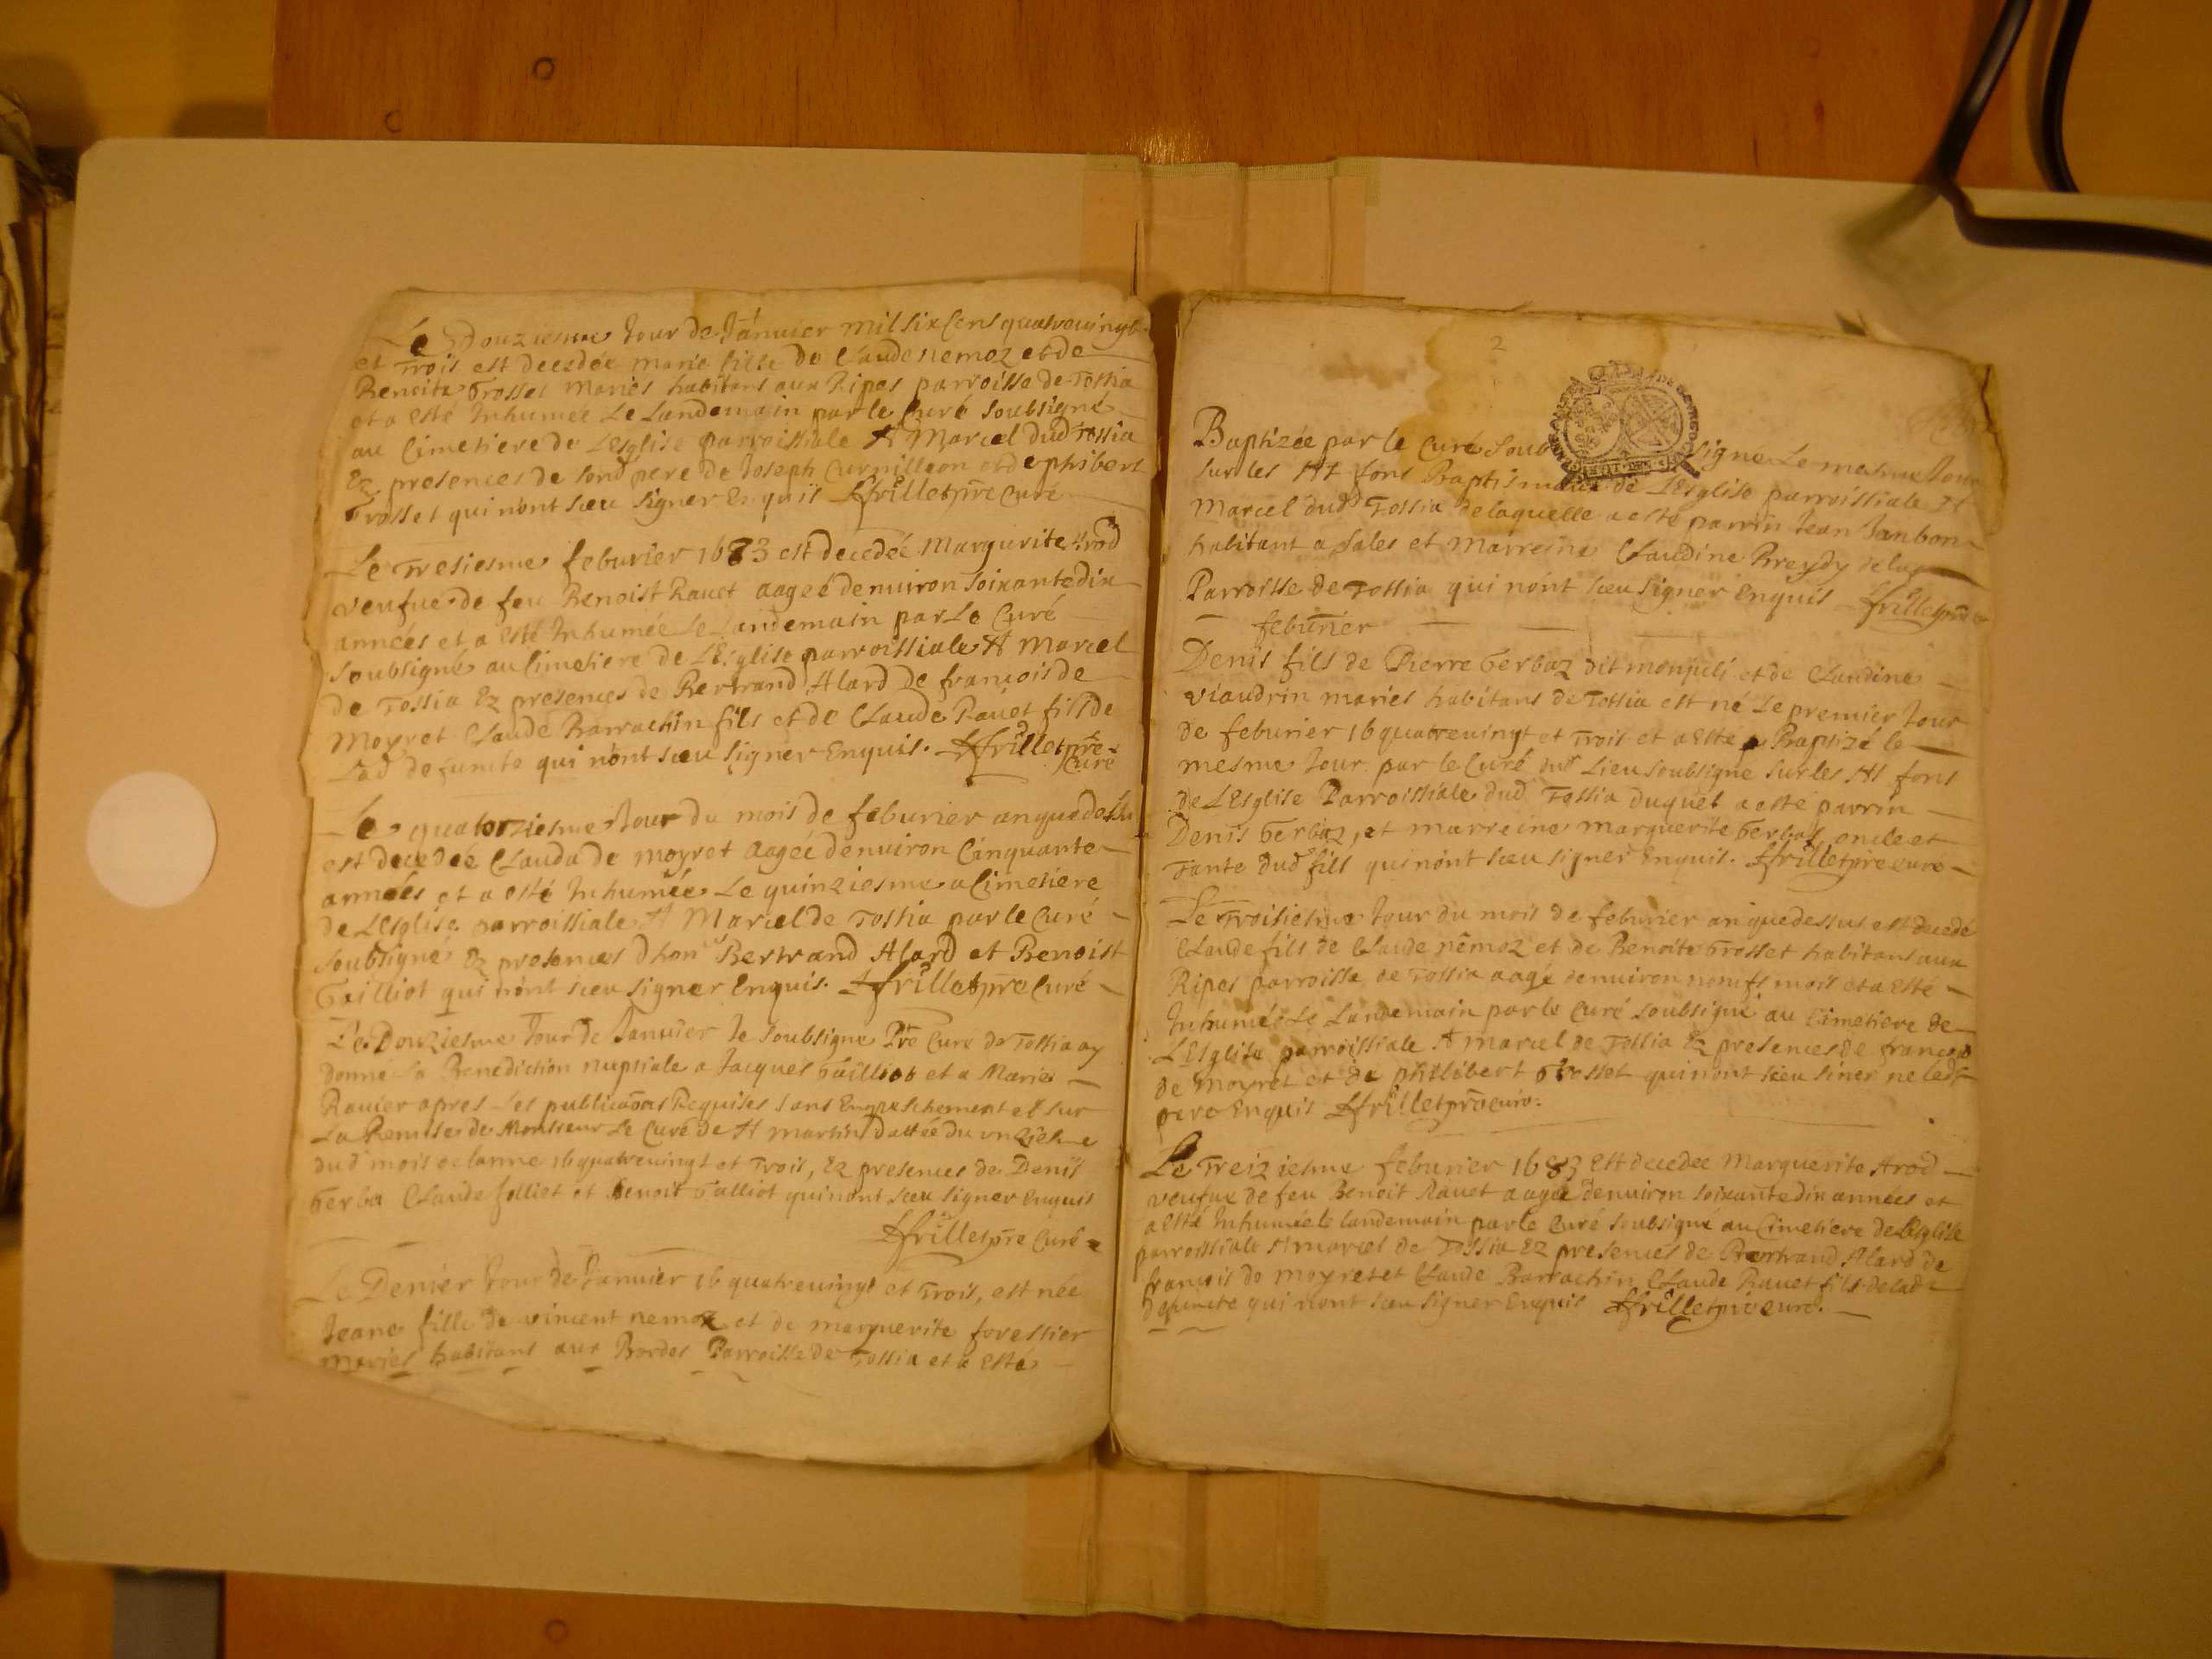 Le douziesme Jour de Januier mil six Cens quatreuingt
et Trois est decedée marie fille de Claude nemoz et de
Benoite Trosset mariés habitans aux Ripes parroisse de Tossia
et a Esté Inhumée Le Landemain par le Curé soubsigné
au Cimetiere de LEsglise parroissiale St Marcel dud Tossia
Ez presences de sond pere de Joseph Curnilleon et de phibert
Trosset qui nònt sceu signer Enquis ffrillet pre Curé
Le Tresiesme feburier 1683 est decedée Margurite Arod
veufue de feu Benoist Rauet aageé denuiron soixante dix
années et a Esté Inhumée Le Landemain par Le Curé
soubsigné au Cimetiere de LEsglise parroissiale St Marcel
de Tossia Ez presences de Bertrand Alard de francois de
Moyret Claude Barrachin fils et de Claude Rauet fils de
Lad defuncte qui nònt sceu signer Enquis. ffrillet pre
Curé
Le quatorziesme Jour du mois de feburier an que dessu
est decedée Clauda de moyret aagée denuiron Cinquante
années et a esté Inhumée Le quinziesme a Cimetiere
de LEsglise parroissiale St Marcel de Tossia par le Curé
soubsigné Ez presences dhon Bertrand Alard et Benoist
Tailliot qui nònt sceu signer Enquis. ffrillet pre Curé
Le Douziesme Jour de Januier Je soubsigne Pre Curé de Tossia ay
donne La Benediction nuptiale a Jacques Tailliot et a Marie
Rauier apres Les publicaõns Requises sans Empeschement et sur
La Remise de Monsieur Le Curé de St martin dattée du vnziesme
dud mois de lanne 16 quatreuingt et Trois, Ez presences de Denis
Gerba Claude folliet et Benoit Talliot qui nont sceu signer enquis
ffrillet pre Curé
Le Denier Jour de Januier 16 quatreuingt et Trois, est née
Jeane fille de vincent nemoz et de marguerite forestier
Mariés habitans aux Bordes Parroisse de Tossia et a Esté
2
Baptizée par le Curé Soubsigne Le mesme Jour
sur les Sts fons Baptismaux de LEsglise parroissiale St
Marcel dud Tossia de laquelle a esté parrin Jean Janbon
habitant a Sales et Marreine Claudine Breydy de la
Parroisse de Tossia qui nónt sceu signer Enquis ffrillet pre
feburier
Denis fils de Pierre Gerbaz dit monjuli et de Claudine
viaudrin mariés habitans de Tossia est né Le premier Jour
de feburier 16 quatreuingt et Trois et a Esté Baptizé le
mesme Jour par le Curé dud Lieu soubsigne sur les Sts fons
de LEsglise Parroissiale dud Tossia duquel a esté parrin
Denis Gerbaz, et marreine marguerite Gerbaz oncle et
Tante dud fils qui nònt sceu signer Enquis. ffrillet pre curé
Le Troisiesme Jour du mois de feburier an que dessus est decedé
Claude fils de Claude nemoz et de Benoite Trosset habitans aux
Ripes parroisse de Tossia aagé denuiron neufs mois et a Esté
Inhumé Le Landemain par le Curé soubsigné au Cimetiere de
LEsglise parroissiale St marcel de Tossia Ez presences de francois
de moyret et de philibert Trosset qui nont sceu siner ne led
pere Enquis ffrillet pre curé.
Le Treiziesme feburier 1683 Est decedée Marguerite Arod
veufue de feu Benoit Rauet aagée denuiron soixante dix années et
a Esté Inhumée le landemain par le Curé soubsigné au Cimetiere de LEsglise
parroissiale St marcel de Tossia Ez presences de Bertrand Alard de
francois de moyret et Claude Barrachin Claude Rauet fils de lad
defuncte qui nont sceu signer Enquis ffrillet pre curé.